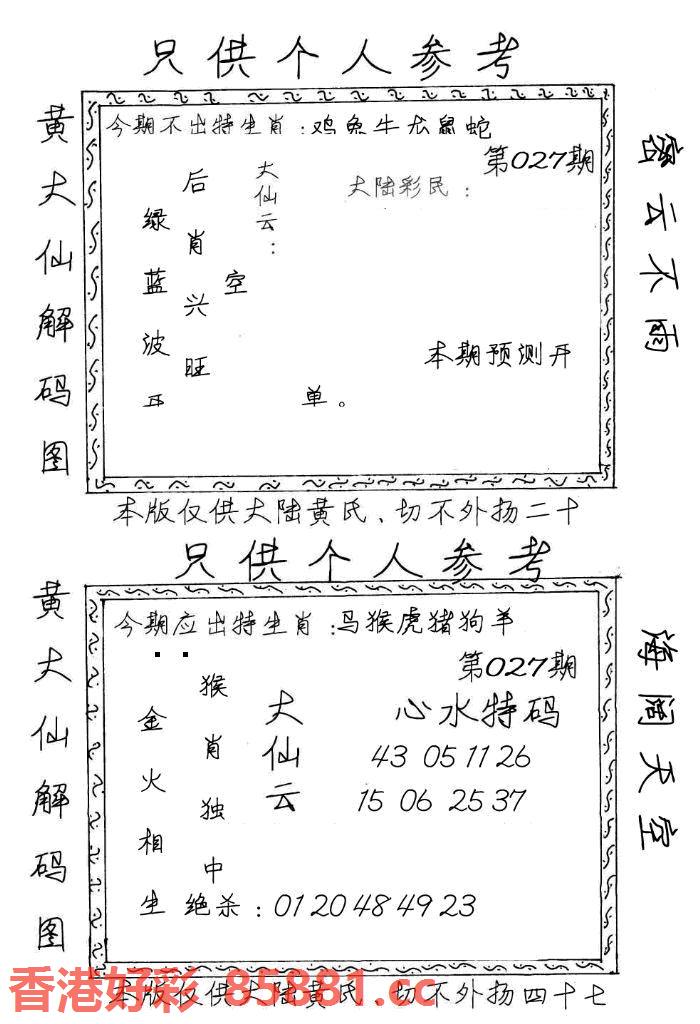 只供个人参考
黄大仙解码图
今期不出特生肖：鸡兔牛龙鼠蛇
第027期
大陆彩民：
大仙云：
后肖兴旺
绿蓝波开
空
本期预测开
单。
密云不雨
本版仅供大陆黄氏、切不外扬二十
只供个人参考
黄大仙解码图
今期应出特生肖：马猴虎猪狗羊
第027期
心水特码
43 05 11 26
15 06 25 37
大仙云
猴肖独中
金火相生
绝杀：01 20 48 49 23
海阔天空
本版仅供大陆黄氏、切不外扬四十七
香港好彩 85881.cc